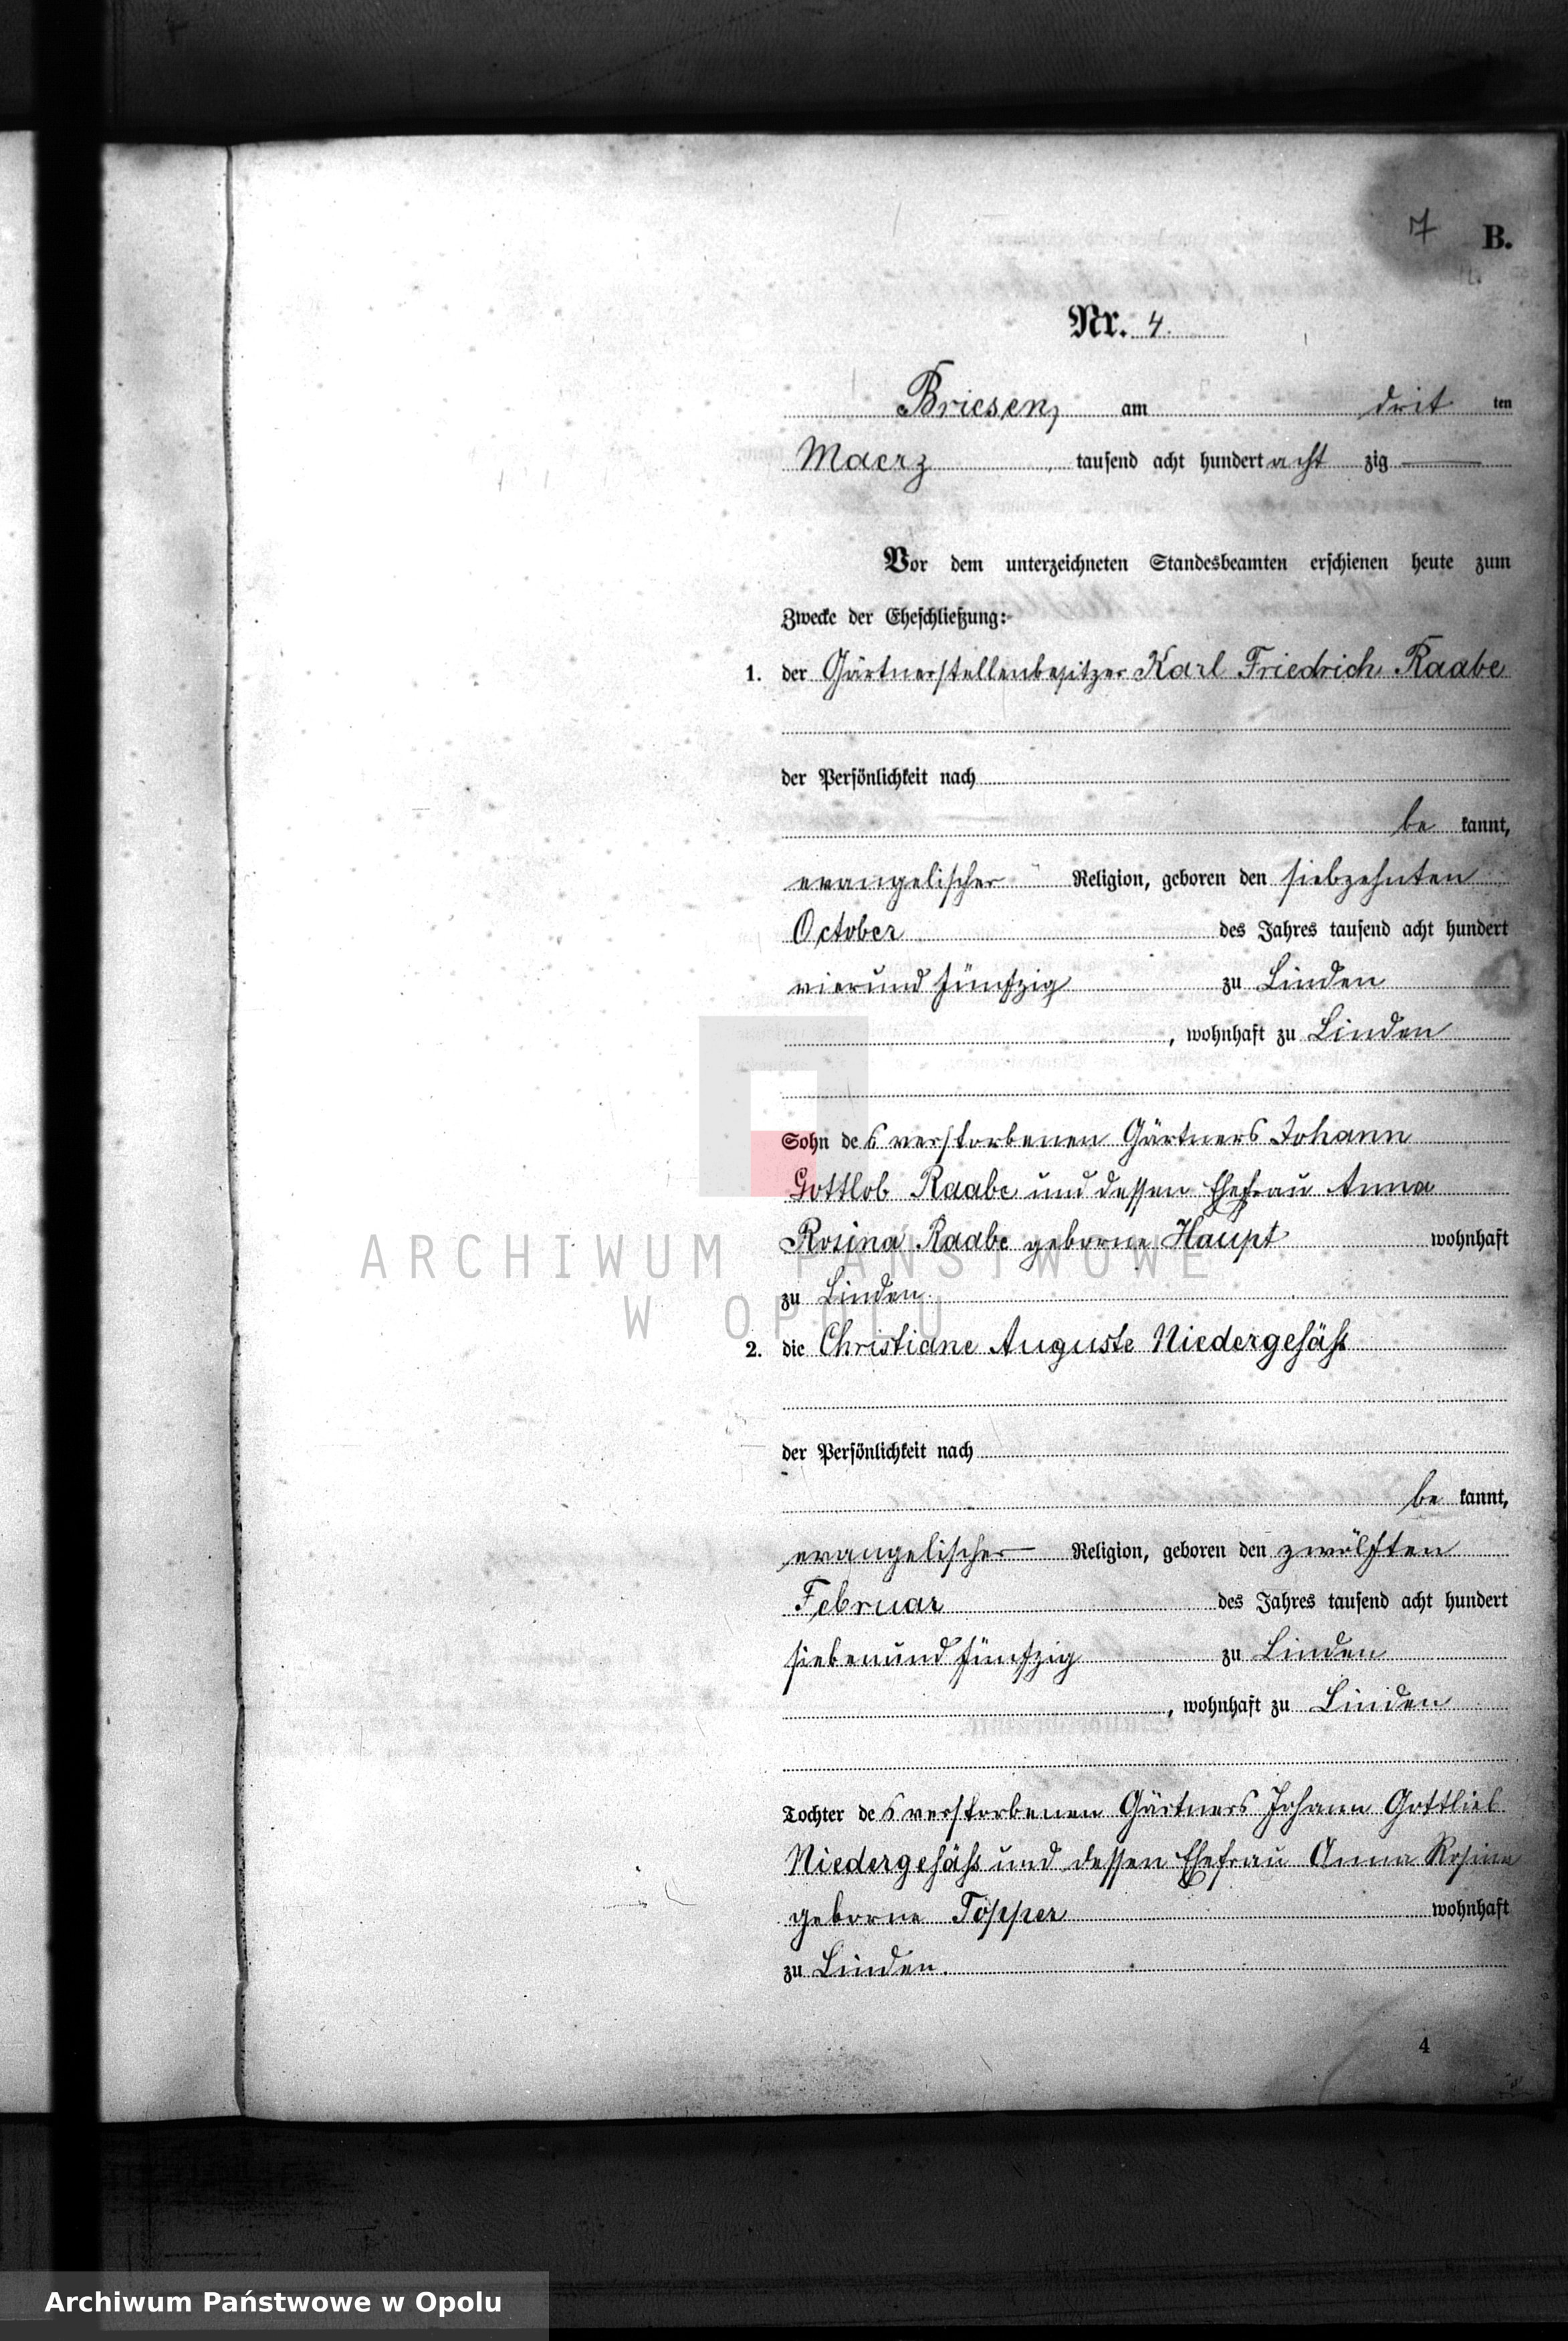 7 B.
Nr. 4.
Briesen, am drit ten
Maerz tausend acht hundert acht zig
Vor dem unterzeichneten Standesbeamten erschienen heute zum
Zwecke der Eheschließung:
1. der Gärtnerstellenbesitzer Karl Friedrich Raabe
der Persönlichkeit nach
be kannt,
evangelischer Religion, geboren den siebzehnten
October des Jahres tausend acht hundert
vierund fünfzig zu Linden
, wohnhaft zu Linden
Sohn des verstorbenen Gärtners Johann
Gottlob Raabe und dessen Ehefrau Anna
Rosina Raabe geborne Haupt wohnhaft
zu Linden.
2. die Christiane Auguste Niedergesäß
der Persönlichkeit nach
be kannt,
evangelischer Religion, geboren den zwölften
Februar des Jahres tausend acht hundert
siebenund fünfzig zu Linden
, wohnhaft zu Linden
Tochter des verstorbenen Gärtners Johann Gottlieb
Niedergesäß und dessen Ehefrau Anna Rosina
geborne Topper wohnhaft
zu Linden.
4
ARCHIWUM PAŃSTWOWE
W OPOLU
Archiwum Państwowe w Opolu